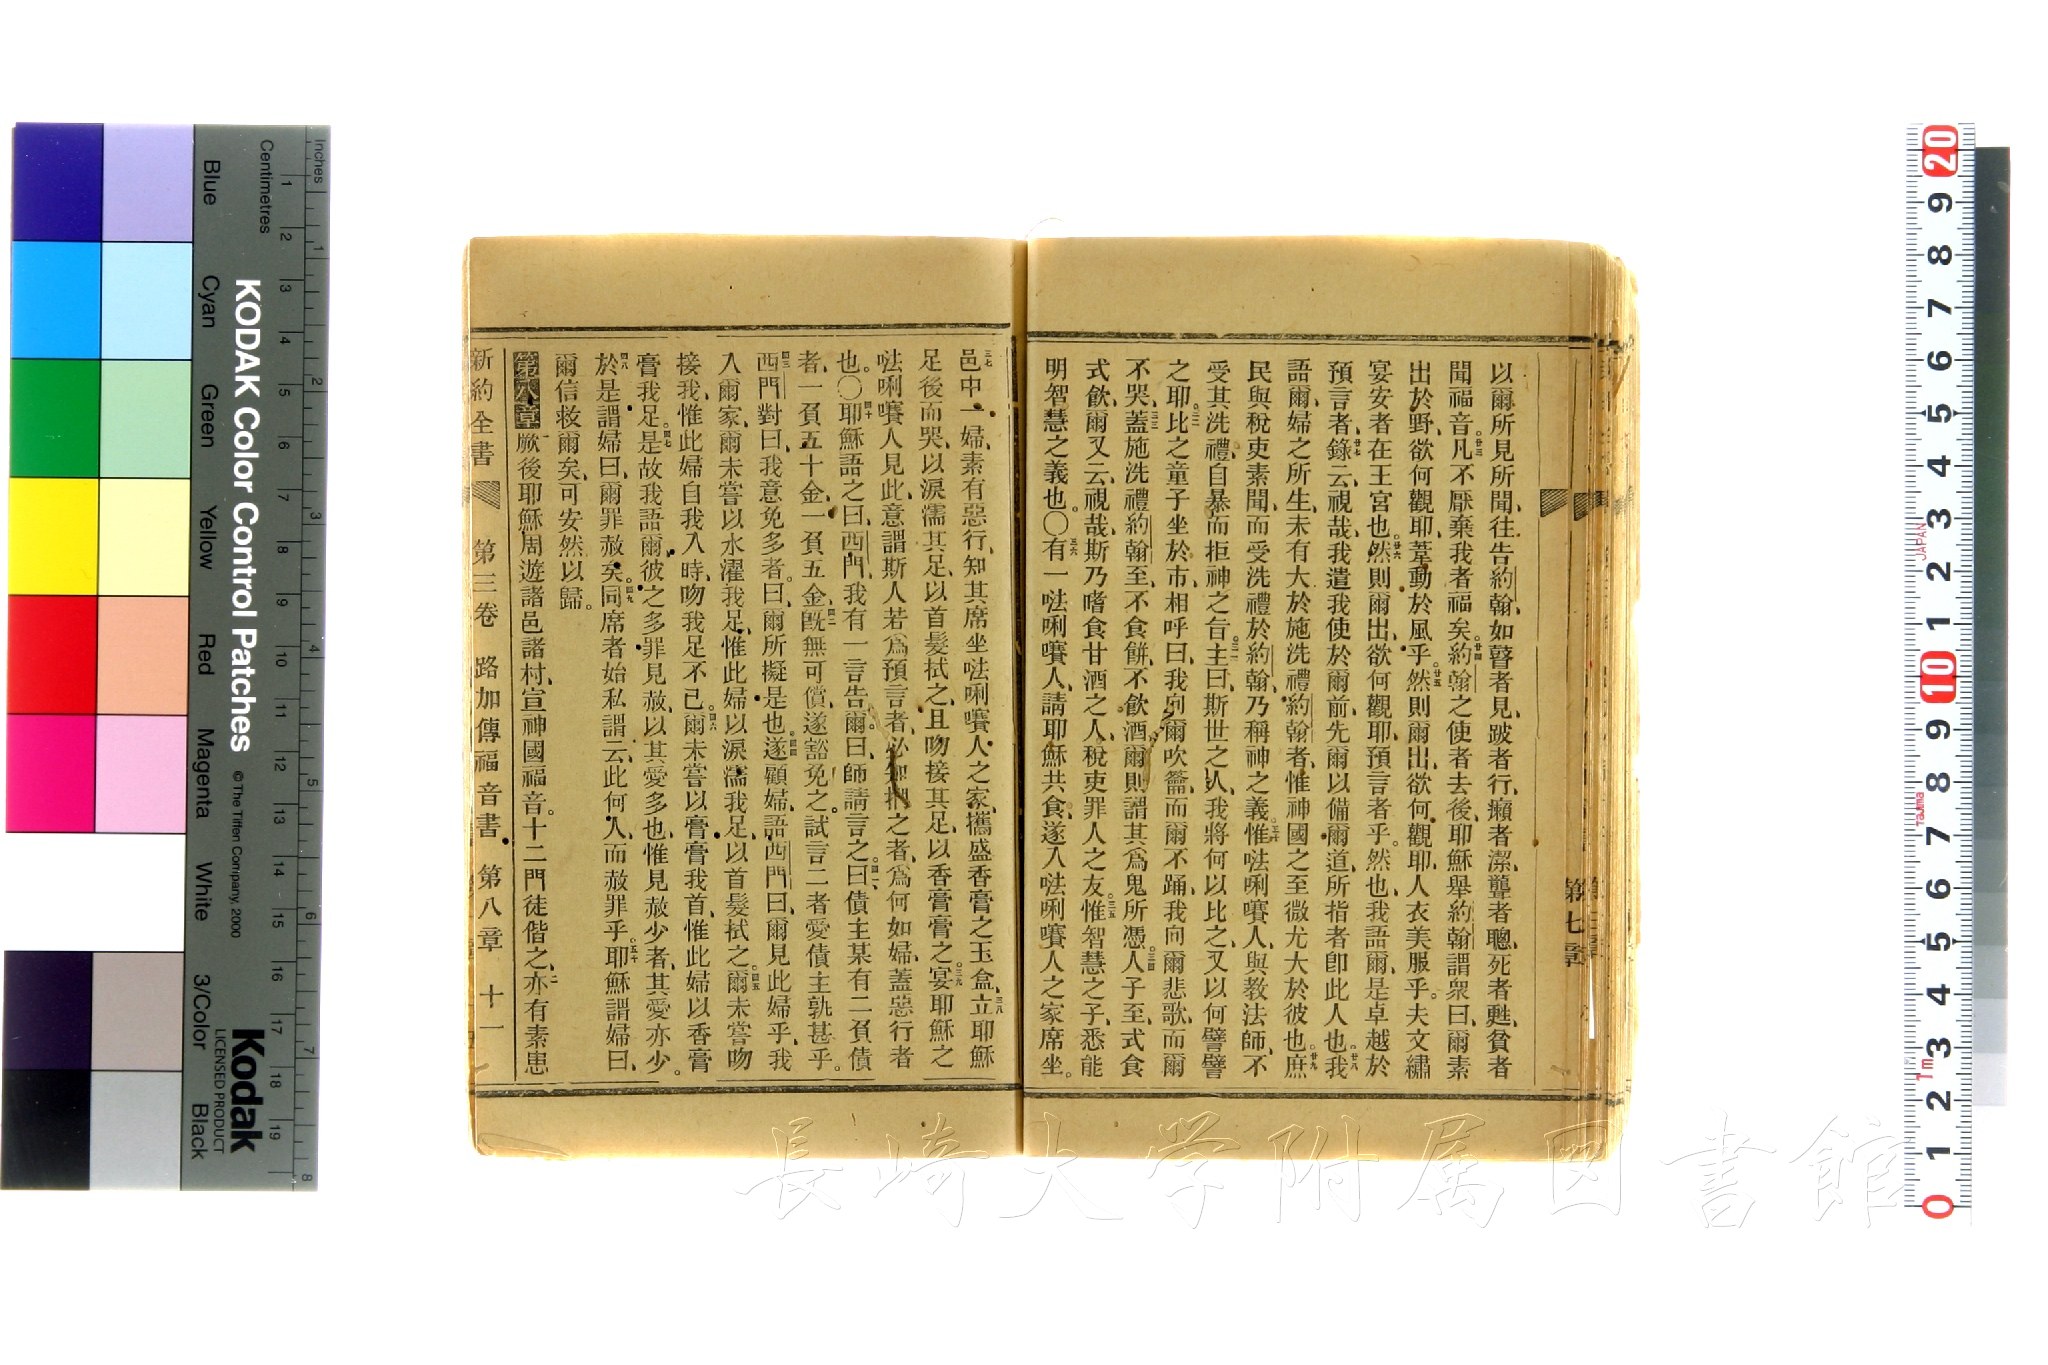 以爾所見所聞、往告約翰、如瞽者見、跛者行、癩者潔、聾者聰、死者甦、貧者
聞福音、廿三凡不厭棄我者福矣。廿四約翰之使者去後、耶穌舉約翰謂衆曰、爾素
出於野、欲何觀耶、葦動於風乎。廿五然則爾出、欲何觀耶、人衣美服乎。夫文繡
宴安者、在王宮也。廿六然則爾出、欲何觀耶、預言者乎。然也、我語爾、是卓越於
預言者、廿七錄云、視哉、我遣我使於爾前、先爾以備爾道、所指者卽此人也。廿八我
語爾、婦之所生、未有大於施洗禮約翰者、惟神國之至微、尤大於彼也。廿九庶
民與稅吏素聞、而受洗禮於約翰、乃稱神之義。三十惟㖿唎㘔人、與教法師、不
受其洗禮、自暴而拒神之旨。三一主曰、斯世之人、我將何以比之、又以何譬譬
之耶。三二比之童子坐於市、相呼曰、我向爾吹籥、而爾不踊、我向爾悲歌、而爾
不哭。三三蓋施洗禮約翰至、不食餅、不飮酒、爾則謂其爲鬼所憑。三四人子至、式食
式飮、爾又云、視哉、斯乃嗜食甘酒之人、稅吏罪人之友。三五惟智慧之子、悉能
明智慧之義也。〇三六有一㖿唎㘔人、請耶穌共食、遂入㖿唎㘔人之家席坐。
第七章
三七邑中一婦、素有惡行、知其席坐㖿唎㘔人之家、攜盛香膏之玉盒、三八立耶穌
足後而哭、以淚濡其足、以首髮拭之、且吻接其足、以香膏膏之。三九宴耶穌之
㖿唎㘔人見此、意謂斯人若爲預言者、必知捫之者、爲何如婦、蓋惡行者
也。〇四十耶穌語之曰、西門、我有一言告爾。曰、師請言之。四一曰、債主某有二負債
者、一負五十金、一負五金、四二旣無可償、遂豁免之。試言二者愛債主孰甚乎。
四三西門對曰、我意免多者。曰、爾所擬是也。四四遂顧婦、語西門曰、爾見此婦乎、我
入爾家、爾未嘗以水濯我足、惟此婦以淚濡我足、以首髮拭之。四五爾未嘗吻
接我、惟此婦自我入時、吻我足不已。四六爾未嘗以膏膏我首、惟此婦以香膏
膏我足。四七是故我語爾、彼之多罪見赦、以其愛多也、惟見赦少者、其愛亦少。
四八於是謂婦曰、爾罪赦矣。四九同席者始私謂云、此何人、而赦罪乎。五十耶穌謂婦曰、
爾信救爾矣、可安然以歸。
第八章 厥後耶穌周遊諸邑諸村、宣神國福音。十二門徒偕之、二亦有素患
新約全書 第三卷 路加傳福音書 第八章 十一
長崎大学附属図書館
Inches
Centimetres
KODAK Color Control Patches
© The Tiffen Company, 2000
Kodak
LICENSED PRODUCT
Blue
Cyan
Green
Yellow
Red
Magenta
White
3/Color
Black
JAPAN
Tajima
1m